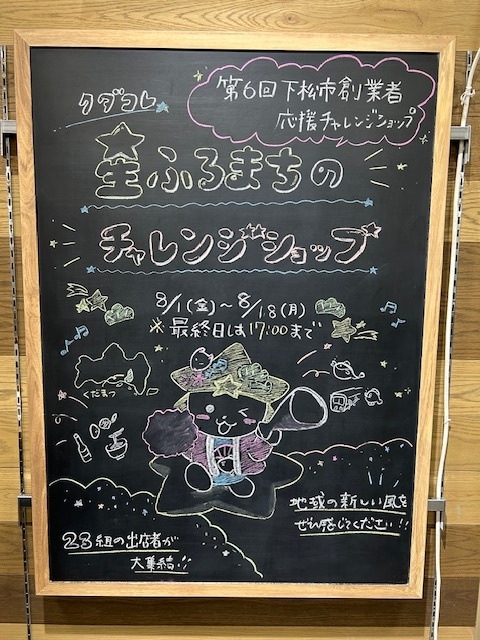 第6回下松市創業者
応援チャレンジショップ
クダコレ
星ふるまちの
チャレンジショップ
8/1(金)~8/18(月)
※最終日は17:00まで
くだまつ
地域の新しい風を
ぜひ感じてください!!
23組の出店者が
大集結!!